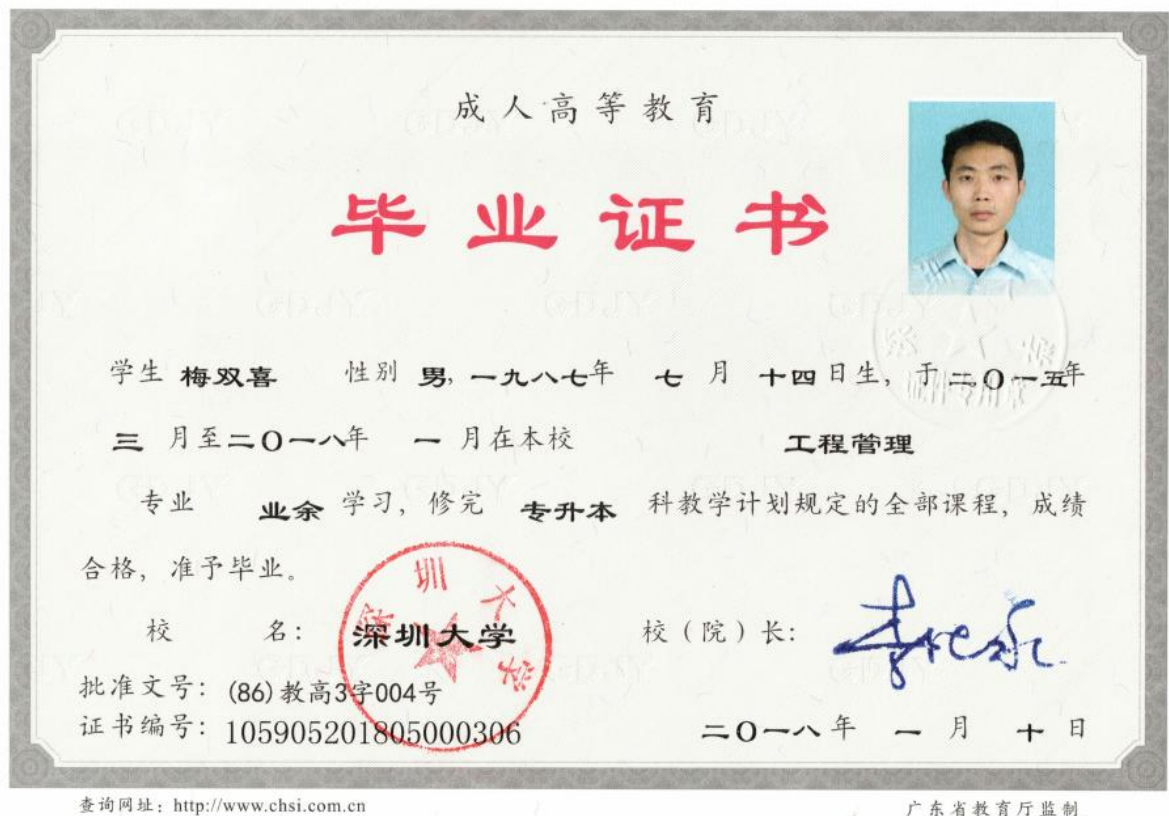 成人高等教育
毕业证书
学生 梅双喜 性别 男, 一九八七年 七 月 十四 日生, 于 二〇一五年
三 月至二〇一八年 一 月在本校 工程管理
专业 业余 学习, 修完 专升本 科教学计划规定的全部课程, 成绩
合格, 准予毕业。
校 名: 深圳大学 校(院)长:
深圳大学
批准文号: (86)教高3字004号
证书编号: 105905201805000306 二〇一八年 一 月 十 日
查询网址: http://www.chsi.com.cn 广东省教育厅监制